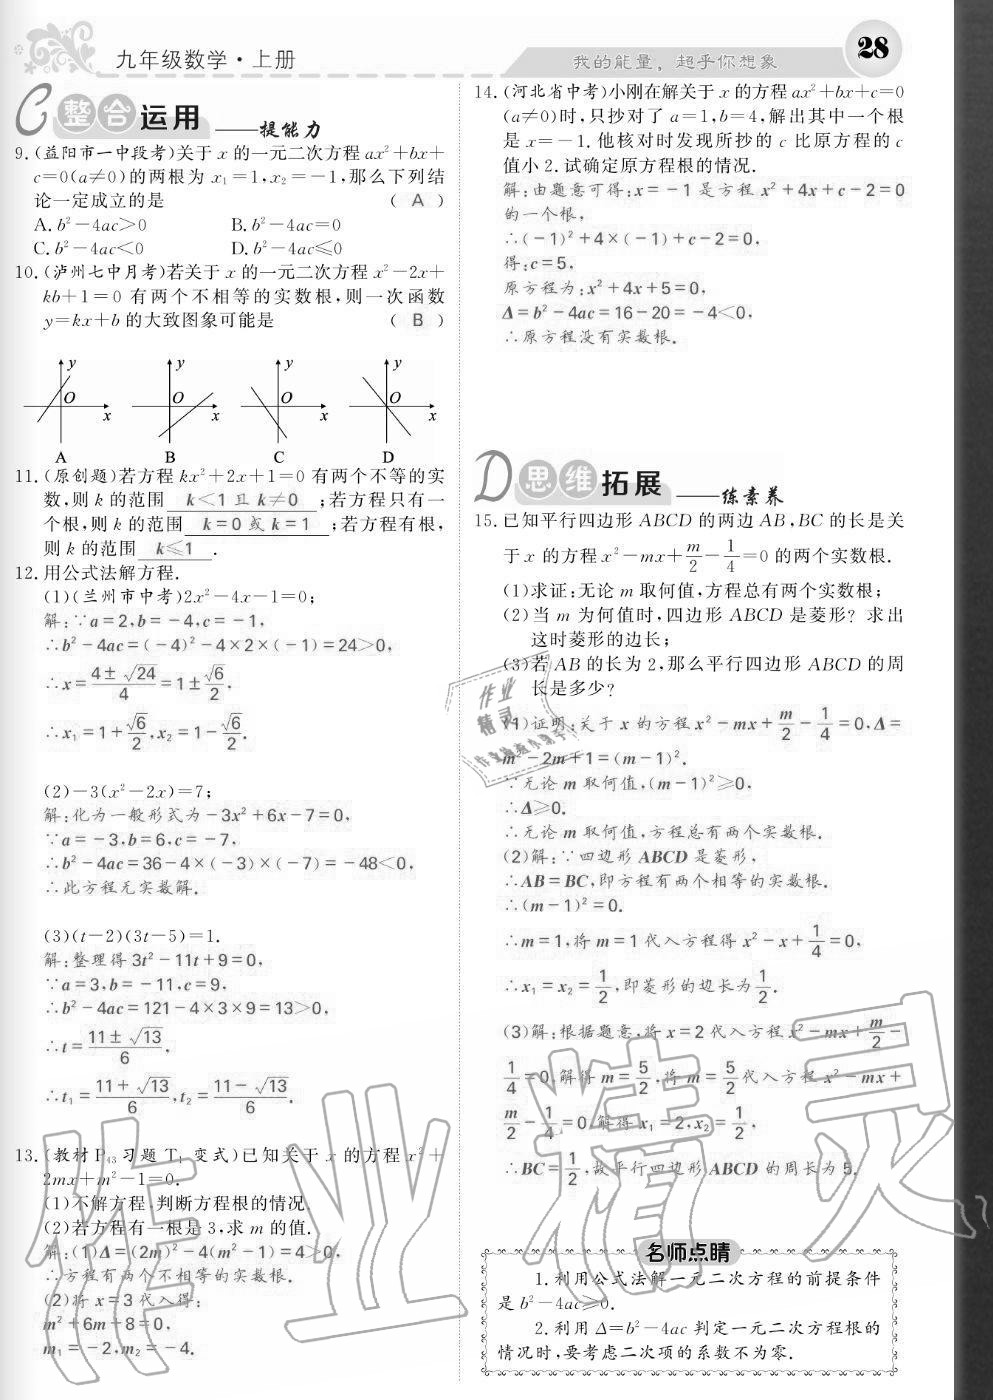 九年级数学·上册
我的能量，超乎你想象
28
C 整合运用 ——提能力
9.(益阳市一中段考)关于 x 的一元二次方程 ax²+bx+
c=0(a≠0)的两根为 x₁=1,x₂=-1,那么下列结
论一定成立的是 ( A )
A.b²-4ac>0 B.b²-4ac=0
C.b²-4ac<0 D.b²-4ac≤0
10.(泸州七中月考)若关于 x 的一元二次方程 x²-2x+
kb+1=0 有两个不相等的实数根,则一次函数
y=kx+b 的大致图象可能是 ( B )
y y y y
O O O O
x x x x
A B C D
11.(原创题)若方程 kx²+2x+1=0 有两个不等的实
数,则 k 的范围 k<1 且 k≠0 ;若方程只有一
个根,则 k 的范围 k=0 或 k=1 ;若方程有根,
则 k 的范围 k≤1 .
12.用公式法解方程.
(1)(兰州市中考)2x²-4x-1=0;
解:∵a=2,b=-4,c=-1,
∴b²-4ac=(-4)²-4×2×(-1)=24>0,
∴x=(4±√24)/4=1±√6/2,
∴x₁=1+√6/2,x₂=1-√6/2.
(2)-3(x²-2x)=7;
解:化为一般形式为-3x²+6x-7=0,
∵a=-3,b=6,c=-7,
∴b²-4ac=36-4×(-3)×(-7)=-48<0,
∴此方程无实数解.
(3)(t-2)(3t-5)=1.
解:整理得3t²-11t+9=0,
∵a=3,b=-11,c=9,
∴b²-4ac=121-4×3×9=13>0,
∴t=(11±√13)/6,
∴t₁=(11+√13)/6,t₂=(11-√13)/6.
13.(教材 P₄₃ 习题 T₁ 变式)已知关于 x 的方程 x²+
2mx+m²-1=0.
(1)不解方程,判断方程根的情况.
(2)若方程有一根是 3,求 m 的值.
解:(1)Δ=(2m)²-4(m²-1)=4>0,
∴方程有两个不相等的实数根.
(2)将 x=3 代入得:
m²+6m+8=0,
m₁=-2,m₂=-4.
14.(河北省中考)小刚在解关于 x 的方程 ax²+bx+c=0
(a≠0)时,只抄对了 a=1,b=4,解出其中一个根
是 x=-1.他核对时发现所抄的 c 比原方程的 c
值小 2.试确定原方程根的情况.
解:由题意可得:x=-1 是方程 x²+4x+c-2=0
的一个根,
∴(-1)²+4×(-1)+c-2=0,
得:c=5,
原方程为:x²+4x+5=0,
Δ=b²-4ac=16-20=-4<0,
∴原方程没有实数根.
D 思维拓展 ——练素养
15.已知平行四边形 ABCD 的两边 AB,BC 的长是关
于 x 的方程 x²-mx+m/2-1/4=0 的两个实数根.
(1)求证:无论 m 取何值,方程总有两个实数根;
(2)当 m 为何值时,四边形 ABCD 是菱形? 求出
这时菱形的边长;
(3)若 AB 的长为 2,那么平行四边形 ABCD 的周
长是多少?
(1)证明:关于 x 的方程 x²-mx+m/2-1/4=0,Δ=
m²-2m+1=(m-1)².
∵无论 m 取何值,(m-1)²≥0,
∴Δ≥0.
∴无论 m 取何值,方程总有两个实数根.
(2)解:∵四边形 ABCD 是菱形,
∴AB=BC,即方程有两个相等的实数根.
∴(m-1)²=0.
∴m=1,将 m=1 代入方程得 x²-x+1/4=0,
∴x₁=x₂=1/2,即菱形的边长为1/2.
(3)解:根据题意,将 x=2 代入方程 x²-mx+m/2-
1/4=0,解得 m=5/2,将 m=5/2代入方程 x²-mx+
m/2-1/4=0,解得 x₁=2,x₂=1/2,
∴BC=1/2,故平行四边形 ABCD 的周长为 5.
名师点睛
1.利用公式法解一元二次方程的前提条件
是 b²-4ac≥0.
2.利用 Δ=b²-4ac 判定一元二次方程根的
情况时,要考虑二次项的系数不为零.
作业精灵
作业
精灵